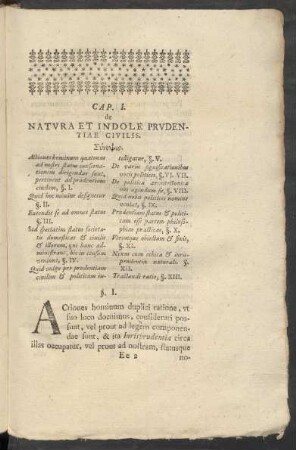 CAP. I.
de
NATVRA ET INDOLE PRVDEN-
TIAE CIVILIS.
Σύνοψις.
Actiones hominum quatenus
ad nostri status conserva-
tionem dirigendae sunt,
pertinent ad prudentiam
civilem, §. I.
Quid hoc vocabulo designetur
§. II.
Extendit se ad omnes status
§. III.
Sed specialius status societa-
tis domesticae & civilis
& illorum, qui hanc ad-
ministrant, hic in censum
veniunt, §. IV.
Quid ergo per prudentiam
civilem & politicam in-
telligatur, §. V.
De variis significationibus
vocis politicus, §. VI. VII.
De politica architectonica
non agendum sit, §. VIII.
Quid nobis politica nomine
veniat, §. IX.
Prudentiam status & politi-
cam esse partem philoso-
phiae practicae, §. X.
Vtriusque obiectum & finis,
§. XI.
Nexus cum ethica & iuris-
prudentia naturali. §.
XII.
Tractandi ratio, §. XIII.
§. I.
Actiones hominum duplici ratione, vt
suo loco docuimus, considerari pos-
sunt, vel prout ad legem componen-
dae sunt, & ita Iurisprudentia circa
illas occupatur, vel prout ad nostram, statusque
Ee 2
no-